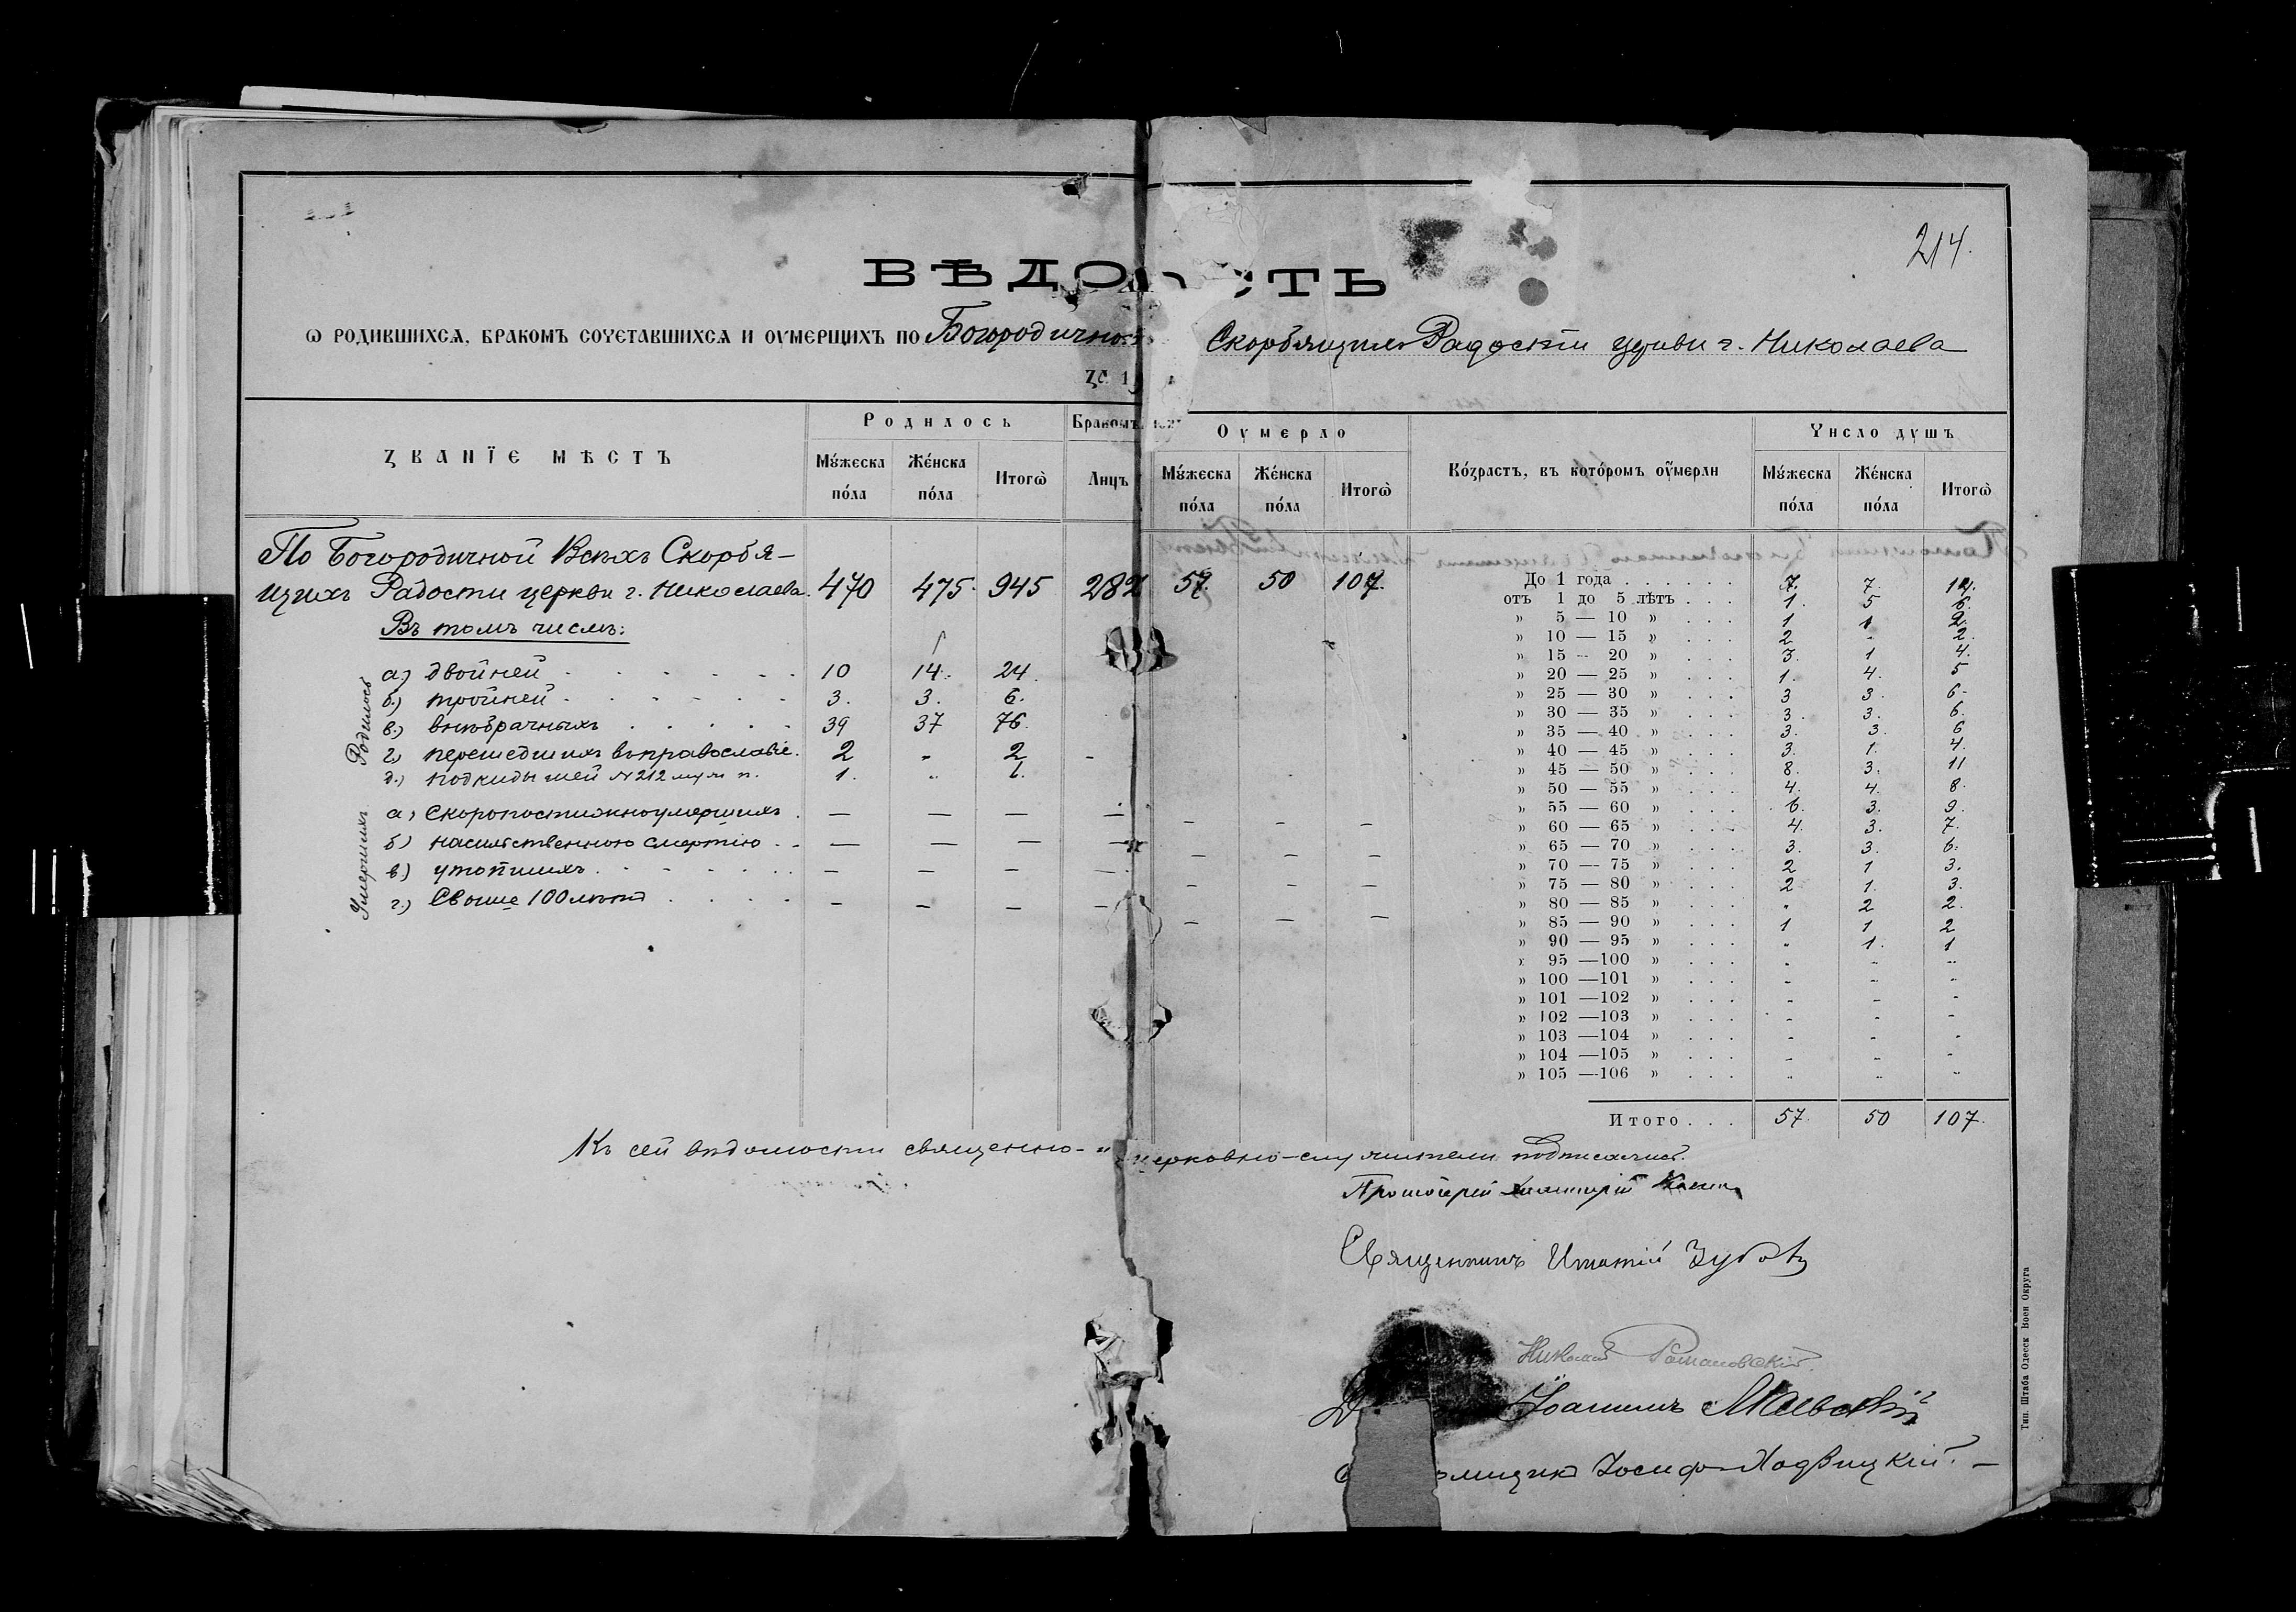 214.
ВѢДО СТЬ
Ѡ РОДИВШИХСѦ, БРАКОМЪ СОЧЕТАВШИХСѦ И ОУМЕРШИХЪ ПО Богородично Скорбящихъ Радости церкви г. Николаева
ЗА 1
ЗВАНЇЕ МѢСТЪ Родилось Бракомъ Оумерло Возрастъ, въ которомъ оумерли Число душъ
Мужеска пола Женска пола Итогѡ Лицъ Мужеска пола Женска пола Итогѡ Мужеска пола Женска пола Итогѡ
По Богородичной Всѣхъ Скорбя-
щихъ Радости церкви г. Николаева. 470 475. 945 282 57. 50 107.
Въ томъ числѣ:
Родилось
а) двойней 10 14. 24
б.) тройней 3. 3. 6.
в.) внѣбрачныхъ 39 37 76.
г.) перешедшихъ въ православіе. 2 „ 2 -
д.) подкидышей № 212 муж п. 1. „ 1.
Умершихъ
а) Скоропостижноумершихъ — — — — — — —
б) насильственною смертію — — — — — — —
в) утопшихъ — — — — — — —
г.) Свыше 100 лѣтъ — — — — — — —
До 1 года 7. 7. 14.
отъ 1 до 5 лѣтъ 1. 5 6.
» 5 — 10 » 1 1 2.
» 10 — 15 » 2 - 2.
» 15 — 20 » 3. 1 4.
» 20 — 25 » 1. 4. 5
» 25 — 30 » 3 3. 6
» 30 — 35 » 3. 3. 6.
» 35 — 40 » 3. 3. 6
» 40 — 45 » 3. 1. 4.
» 45 — 50 » 8. 3. 11
» 50 — 55 » 4. 4. 8.
» 55 — 60 » 6. 3. 9.
» 60 — 65 » 4. 3. 7.
» 65 — 70 » 3. 3. 6.
» 70 — 75 » 2 1 3.
» 75 — 80 » 2 1. 3.
» 80 — 85 » „ 2 2.
» 85 — 90 » 1 1 2
» 90 — 95 » „ 1. 1
» 95 —100 » - - -
» 100 —101 » - - -
» 101 —102 » - - -
» 102 —103 » - - -
» 103 —104 » - - -
» 104 —105 » - - -
» 105 —106 » - - -
Итого 57. 50 107.
Къ сей вѣдомости священно- и церковно-служители подписались.
Протоіерей
Священникъ Игнатій Зубовъ
Николай Романовскій.
Іоаннъ Маевскій
ломщикъ Іосифъ Ходвицкій.
Тип. Штаба Одесск Воен Округа